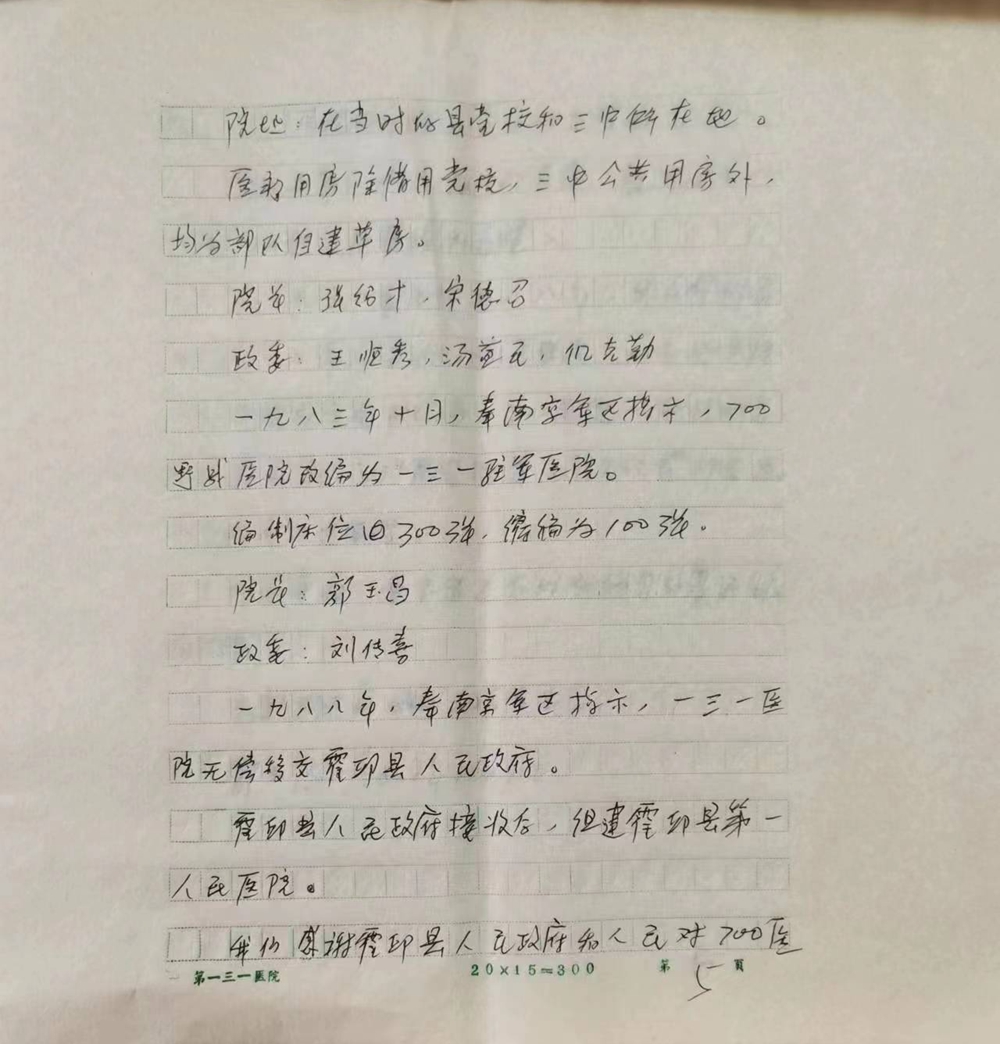 院址：在当时的县党校和三中所在地。
医疗用房除借用党校，三中公共用房外，
均为部队自建草房。
院长：张绍才，宋德召
政委：王恒秀，汤益民，仉克勤
一九八三年十月，奉南京军区指示，700
野战医院改编为一三一驻军医院。
编制床位由300张，缩编为100张。
院长：郭玉昌
政委：刘传喜
一九八八年，奉南京军区指示，一三一医
院无偿移交霍邱县人民政府。
霍邱县人民政府接收后，组建霍邱县第一
人民医院。
我们感谢霍邱县人民政府和人民对700医
第一三一医院 20×15=300 第5頁